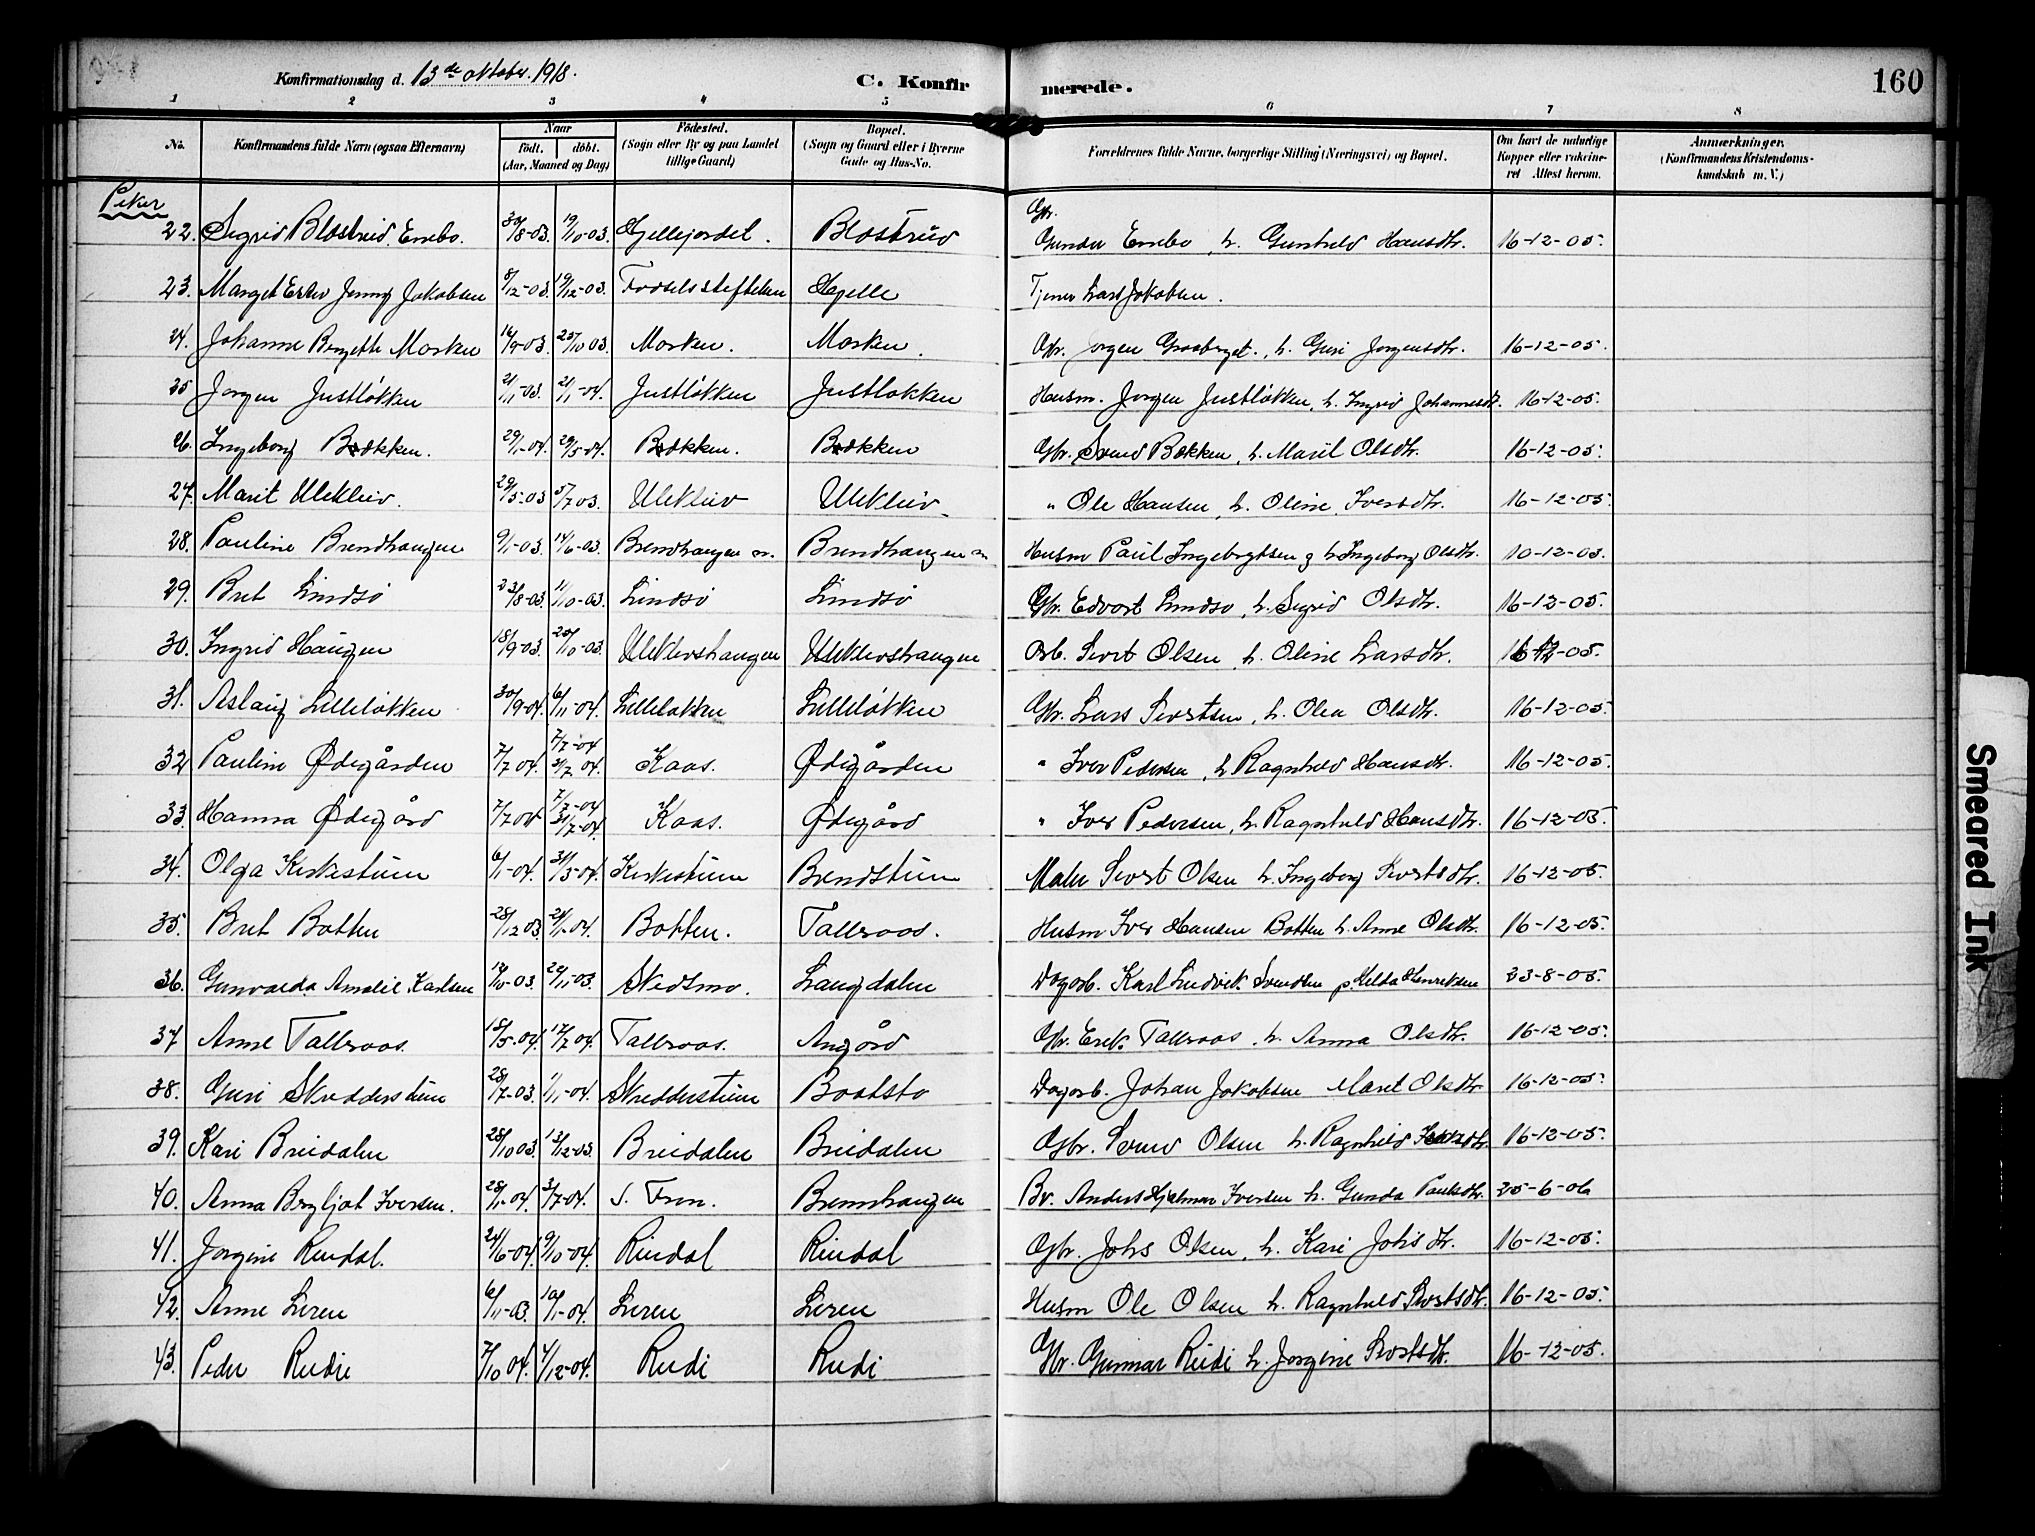 Konfirmationsdag d. 13de oktober 1918.
C. Konfirmerede.
160
1 2 3 4 5 6 7 8
No.
Konfirmandens fulde Navn (ogsaa Efternavn)
Naar
födt. döbt.
(Aar, Maaned og Dag)
Födested.
(Sogn eller By og paa Landet tillige Gaard)
Bopæl.
(Sogn og Gaard eller i Byerne Gade og Hus-No.
Forældrenes fulde Navne, borgerlige Stilling (Næringsvei) og Bopæl.
Om havt de naturlige Kopper eller vakcineret Attest herom.
Anmærkninger.
(Konfirmandens Kristendomskundskab m. V.)
Piker
22. Sigrid Blæstrud Enebo. 30/8-03. 19/10-03. Hjellejordet. Blæstrud Gbr. Gunder Enebo, h. Gunhild Hansdtr. 16-12-05.
23. Marget Ester Jenny Jakobsen 8/12-03. 19/12-03. Fødselsstiftelsen Hjelle Tjener Lars Jakobsen.
24. Johanne Bergitte Morken 16/9-03. 25/10 03. Morken. Morken. Gbr. Jørgen Graaberget, h. Guri Jørgensdtr. 16-12-05.
25 Jørgen Justløkken 21/11-03. 21/1-04. Justløkken Justløkken Husm. Jørgen Justløkken, h. Ingrid Johannesdt. 16-12-05.
26. Ingeborg Bækken. 29/1-04. 29/5-04. Bækken. Bækken Gbr. Svend Bækken, h. Marit Olsdtr. 16-12-05.
27. Marit Ulekleiv. 29/5-03 5/7 03. Ulekleiv Ulekleiv " Ole Hansen, h. Oline Iversdtr. 16-12-05.
28. Pauline Brendhaugen 9/1-03. 14/6-03. Brendhaugen n. Brendhaugen n. Husm Paul Ingebrigtsen g h Ingeborg Olsdtr. 10-12-03.
29. Brit Lindsø 23/8-03. 11/10-03. Lindsø Lindsø Gbr. Edvart Lindsø, h. Sigrid Olsdtr. 16-12-05.
30. Ingrid Haugen 18/9-03. 25/10-03. Uleklevshaugen Uleklevshaugen Arb. Sivert Olsen, h. Oline Larsdtr. 16-12-05.
31. Aslaug Lilleløkken 30/9-04. 6/11-04. Lilleløkken Lilleløkken Gbr. Lars Sivertsen, h. Olea Olsdtr. 16-12-05.
32 Pauline Ødegården 7/7 04. 7/7-04 31/7 04. Kaas. Ødegården " Iver Pedersen, h Ragnhild Hansdtr. 16-12-05.
33. Hanna Ødegård 7/7 04 7/7-04 31/7-04. Kaas. Ødegård " Iver Pedersen, h. Ragnhild Hansdtr. 16-12-05.
34. Olga Kirkestuen 6/1-04. 31/3-04. Kirkestuen Brendstuen Maler Sivert Olsen h. Ingeborg Sivertsdtr. 16-12-05.
35. Brit Botten 28/12 03. 24/1-04. Botten. Talleraas. Husm Iver Hansen Botten h. Anne Olsdtr. 16-12-05.
36. Gunvarda Amalie Karlsen 19/10-03. 22/11 03. Skedsmo. Langdalen Dagarb. Karl Ludvik Svendsen p. Hilda Henriksen 23-8-05.
37 Anne Talleraas. 18/5-04. 17/7 04. Talleraas. Angård Gbr. Erik Talleraas, h. Anna Olsdtr. 16-12-05.
38. Guri Skredderstuen 28/7-03. 1/1-04. Skredderstuen Baatstø Dagarb. Johan Jakobsen Marit Olsdtr 16-12-05.
39. Kari Breidalen 28/10 03. 13/12-03. Breidalen Breidalen Gbr. Svend Olsen h. Ragnhild Iversdtr. 16-12-05.
40. Anna Bergljot Iversen. 28/1-04. 3/7-04. S. Fron. Brennhaugen Bv. Anders Hjalmar Iversen h. Gunda Paulsdtr. 25-6-06
41. Jørgine Rindal. 24/6-04. 9/10-04. Rindal Rindal Gbr. Johs Olsen, h. Kari Johsdtr. 16-12-05.
42. Anne Leren 6/11-03. 10/1-04. Leren Leren Husm Ole Olsen h. Ragnhild Sivertsdtr. 16-12-05.
43. Peder Rudi 7/10 04. 4/12-04. Rudi Rudi Gbr. Gunnar Rudi h. Jørgine Sivertsdtr. 16-12-05.
Smeared Ink